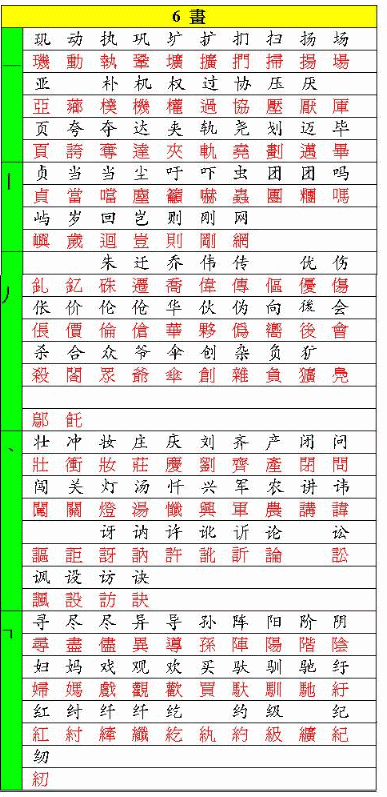 6 畫
一
玑 动 执 巩 圹 扩 扪 扫 扬 场
璣 動 執 鞏 壙 擴 捫 掃 揚 場
亚 朴 机 权 过 协 压 厌
亞 薌 樸 機 權 過 協 壓 厭 厙
页 夸 夺 达 夹 轨 尧 划 迈 毕
頁 誇 奪 達 夾 軌 堯 劃 邁 畢
丨
贞 当 当 尘 吁 吓 虫 团 团 吗
貞 當 噹 塵 籲 嚇 蟲 團 糰 嗎
屿 岁 回 岂 则 刚 网
嶼 歲 迴 豈 則 剛 網
丿
朱 迁 乔 伟 传 优 伤
釓 釔 硃 遷 喬 偉 傳 傴 優 傷
伥 价 伦 伧 华 伙 伪 向 後 会
倀 價 倫 傖 華 夥 僞 嚮 後 會
杀 合 众 爷 伞 创 杂 负 犷
殺 閤 眾 爺 傘 創 雜 負 獷 鳧
鄔 飥
丶
壮 冲 妆 庄 庆 刘 齐 产 闭 问
壯 衝 妝 莊 慶 劉 齊 產 閉 問
闯 关 灯 汤 忏 兴 军 农 讲 讳
闖 關 燈 湯 懺 興 軍 農 講 諱
讶 讷 许 讹 䜣 论 讼
謳 詎 訝 訥 許 訛 訢 論 訟
讽 设 访 诀
諷 設 訪 訣
乛
寻 尽 尽 异 导 孙 阵 阳 阶 阴
尋 盡 儘 異 導 孫 陣 陽 階 陰
妇 妈 戏 观 欢 买 驮 驯 驰 纡
婦 媽 戲 觀 歡 買 馱 馴 馳 紆
红 纣 纤 纤 纥 约 级 纪
紅 紂 縴 纖 紇 紈 約 級 纊 紀
纫
紉